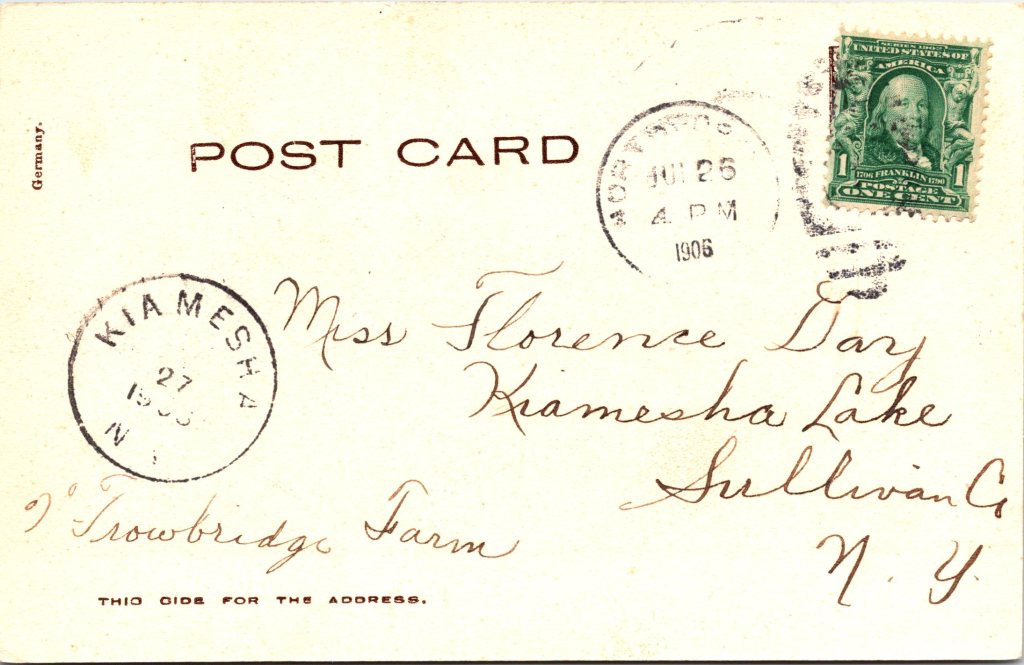 Germany.
POST CARD
JUL 26
4 PM
1906
SERIES 1902
UNITED STATES OF
AMERICA
1 1706 FRANKLIN 1790 1
POSTAGE
ONE CENT
KIAMESHA
27
N
Miss Florence Day
Kiamesha Lake
Sullivan Co
N. Y.
Trowbridge Farm
THIS SIDE FOR THE ADDRESS.